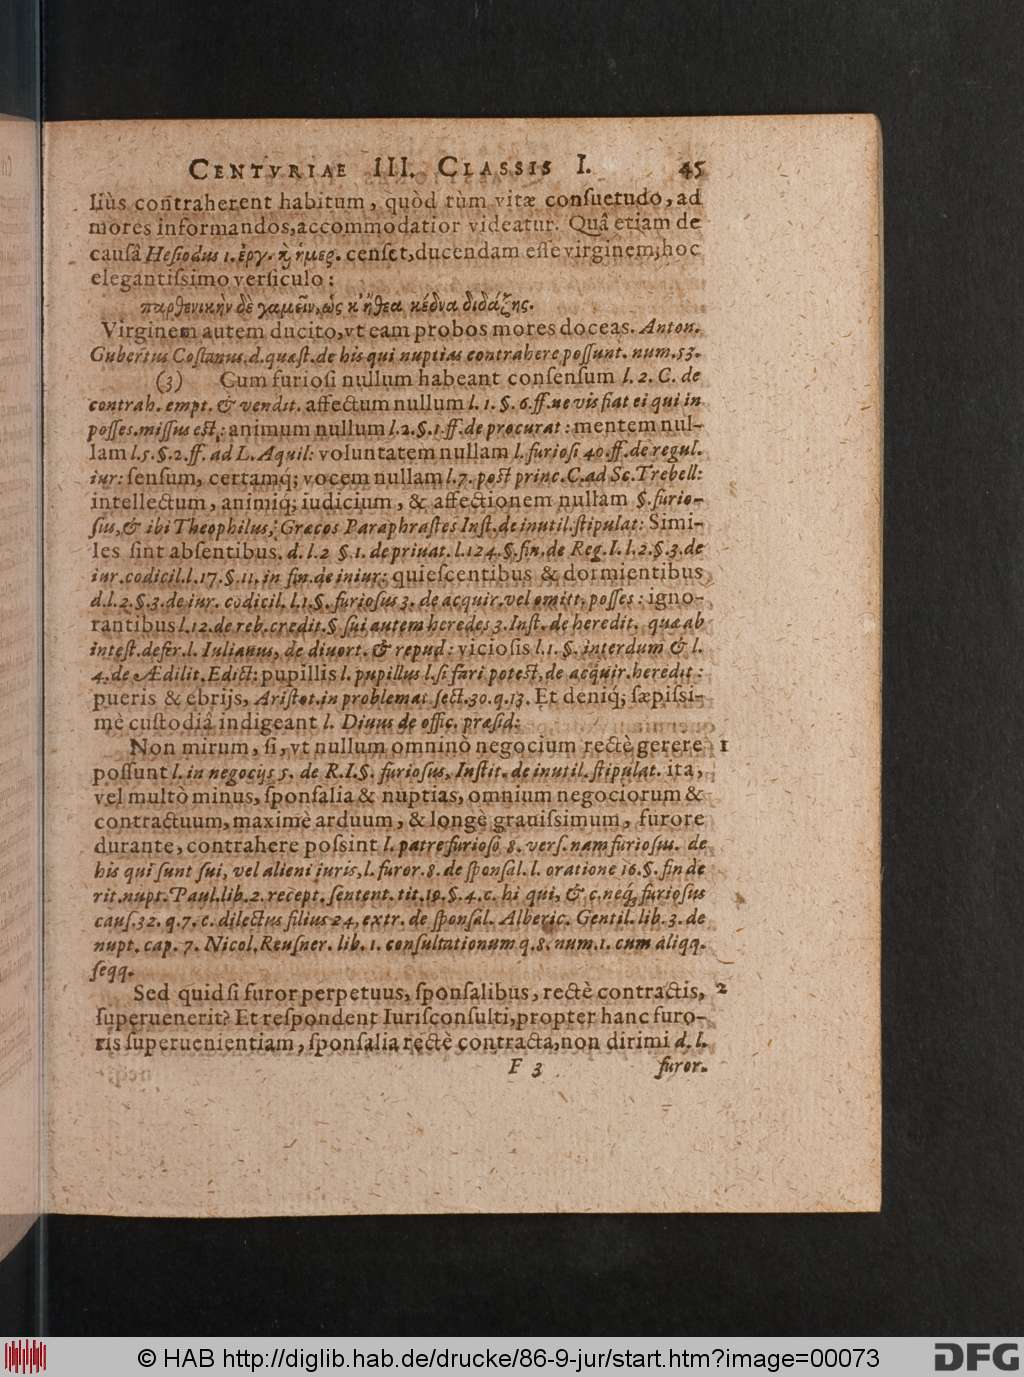 CENTVRIAE III. CLASSIS I. 45
liùs contraherent habitum, quòd tùm vitæ conſuetudo, ad
mores informandos, accommodatior videatur. Quâ etiam de
cauſâ Heſiodus 1. ἐργ. ϗ ἡμερ. cenſet, ducendam eſſe virginem, hoc
elegantiſsimo verſiculo:
παρθενικὴν δὲ γαμεῖν, ὡς κ' ἤθεα κέδνα διδάξῃς.
Virginem autem ducito, vt eam probos mores doceas. Anton.
Gubertus Coſtanus, d. quæſt. de his qui nuptias contrahere poſſunt. num. 53.
(3) Cum furioſi nullum habeant conſenſum l. 2. C. de
contrah. empt. & vendit. affectum nullum l. 1. §. 6. ff. ne vis fiat ei qui in
poſſes. miſſus eſt,: animum nullum l. 2. §. 1. ff. de procurat: mentem nul-
lam l. 5. §. 2. ff. ad L. Aquil: voluntatem nullam l. furioſi 40. ff. de regul.
iur: ſenſum, certamq́; vocem nullam l. 7. poſt princ. C. ad Sc. Trebell:
intellectum, animiq́; iudicium, & affectionem nullam §. furio-
ſus, & ibi Theophilus, Græcos Paraphraſtes Inſt. de inutil. ſtipulat: Simi-
les ſint abſentibus. d. l. 2 §. 1. de priuat. l. 124. §. fin. de Reg. I. l. 2. §. 3. de
iur. codicil. l. 17. §. 11. in fin. de iniur: quieſcentibus & dormientibus,
d. l. 2. §. 3. de iur. codicil. l. 1. §. furioſus 3. de acquir. vel omitt. poſſes: igno-
rantibus l. 12. de reb. credit. §. ſui autem heredes 3. Inſt. de heredit. quæ ab
inteſt. defer. l. Iulianus, de diuort. & repud: vicioſis l. 1. §. interdum & l.
4. de Ædilit. Edict: pupillis l. pupillus l. ſi fari poteſt, de acquir. heredit:
pueris & ebrijs, Ariſtot. in problemat. ſect. 30. q. 13. Et deniq́; ſæpiſsi-
mè cuſtodiâ indigeant l. Diuus de offic. præſid:
Non mirum, ſi, vt nullum omninò negocium rectè gerere 1
poſſunt l. in negocijs 5. de R. I. §. furioſus, Inſtit. de inutil. ſtipulat. ita,
vel multò minus, ſponſalia & nuptias, omnium negociorum &
contractuum, maximè arduum, & longè grauiſsimum, furore
durante, contrahere poſsint l. patre furioſo 8. verſ. nam furioſus. de
his qui ſunt ſui, vel alieni iuris, l. furor. 8. de ſponſal. l. oratione 16. §. fin de
rit. nupt. Paul. lib. 2. recept. ſentent. tit. 19. §. 4. c. hi qui, & c. neq́, furioſus
cauſ. 32. q. 7. c. dilectus filius 24. extr. de ſponſal. Alberic. Gentil. lib. 3. de
nupt. cap. 7. Nicol. Reuſner. lib. 1. conſultationum q. 8. num. 1. cum aliqq.
ſeqq.
Sed quid ſi furor perpetuus, ſponſalibus, rectè contractis, 2
ſuperuenerit? Et reſpondent Iuriſconſulti, propter hanc furo-
ris ſuperuenientiam, ſponſalia rectè contracta, non dirimi d. l.
F 3 furor.
© HAB http://diglib.hab.de/drucke/86-9-jur/start.htm?image=00073
DFG